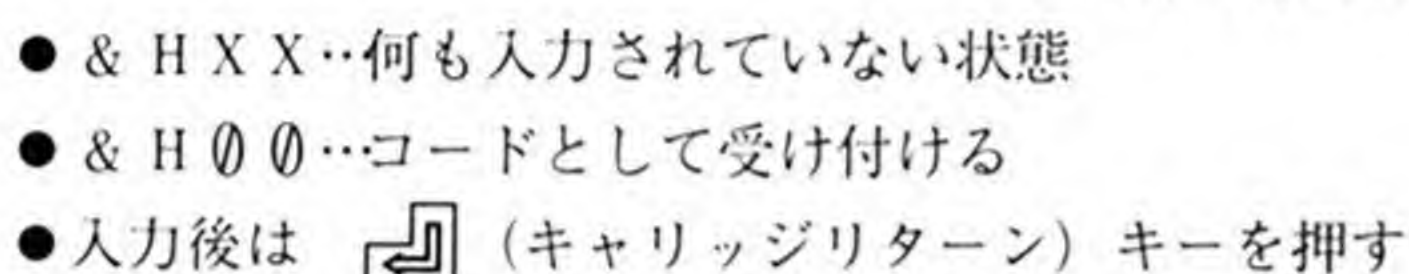 ●&HXX‥何も入力されていない状態
●&H00…コードとして受け付ける
●入力後は （キャリッジリターン）キーを押す